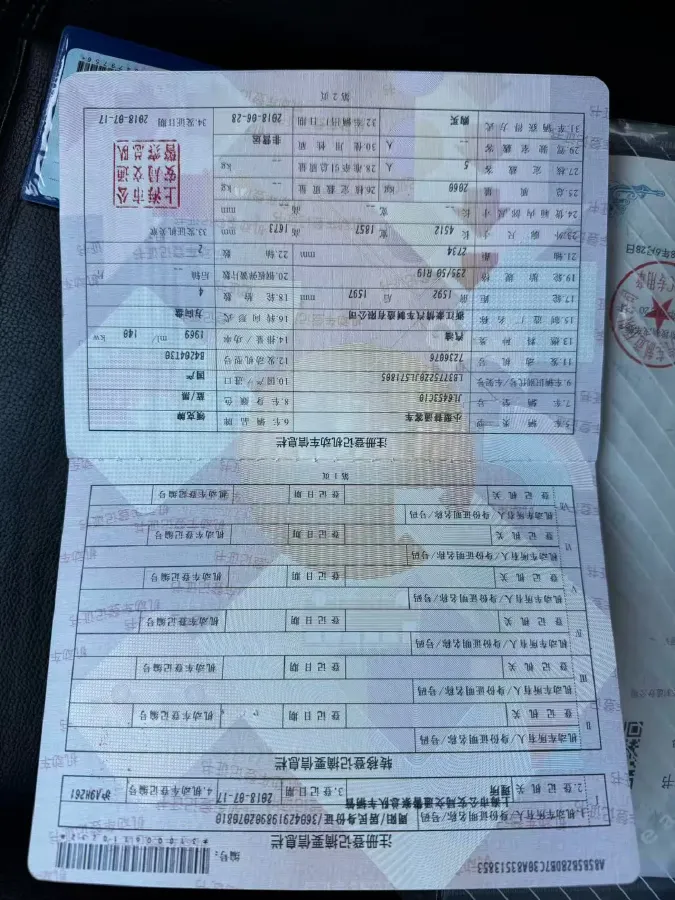 A85B5B2BDB7C30A83513853
编号:
注册登记摘要信息栏
1.机动车所有人/身份证明名称/号码 周阳/居民身份证/360429198902070810
2.登记机关 上海市公安局交通警察总队车辆管理所 3.登记日期 2018-07-17 4.机动车登记编号 沪A9H261
转移登记摘要信息栏
II 机动车所有人/身份证明名称/号码
登记机关 登记日期 机动车登记编号
III 机动车所有人/身份证明名称/号码
登记机关 登记日期 机动车登记编号
IV 机动车所有人/身份证明名称/号码
登记机关 登记日期 机动车登记编号
V 机动车所有人/身份证明名称/号码
登记机关 登记日期 机动车登记编号
VI 机动车所有人/身份证明名称/号码
登记机关 登记日期 机动车登记编号
VII 机动车所有人/身份证明名称/号码
登记机关 登记日期 机动车登记编号
第1页
注册登记机动车信息栏
5.车辆类型 小型普通客车 6.车辆品牌 领克牌
7.车辆型号 JL6453C10 8.车身颜色 蓝/黑
9.车辆识别代号/车架号 LB37752Z0JL571805 10.国产/进口 国产
11.发动机号 7236076 12.发动机型号 B4204T30
13.燃料种类 汽油 14.排量/功率 1969 ml/ 140 kw
15.制造厂名称 浙江豪情汽车制造有限公司 16.转向形式 方向盘
17.轮距 前 1592 后 1597 mm 18.轮胎数 4
19.轮胎规格 235/50 R19 20.钢板弹簧片数 后轴 -- 片
21.轴距 2734 mm 22.轴数 2
23.外廓尺寸 长 4512 宽 1857 高 1673 mm
33.发证机关章
24.货箱内部尺寸 长 -- 宽 -- 高 -- mm
25.总质量 2060 kg 26.核定载质量 -- kg
27.核定载客 5 人 28.准牵引总质量 -- kg
29.驾驶室载客 -- 人 30.使用性质 非营运
31.车辆获得方式 购买 32.车辆出厂日期 2018-06-28 34.发证日期 2018-07-17
上海市公安局交通警察总队
第2页